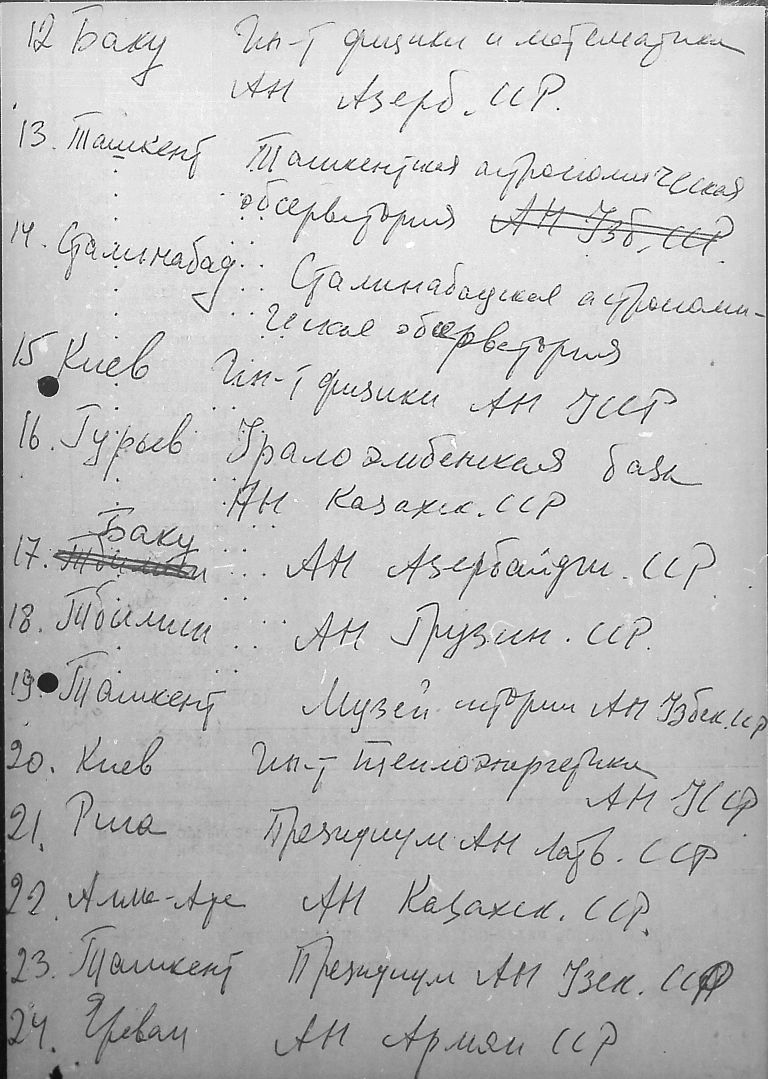 12 Баку Ин-т физики и математики
АН Азерб. ССР.
13. Ташкент Ташкентская астрономическая
обсерватория АН Узб. ССР.
14. Сталинабад Сталинабадская астрономи-
ческая обсерватория
15 Киев Ин-т физики АН УССР
16. Гурьев Уралоэмбенская база
АН Казахск. ССР
Баку
17. Тбилиси АН Азербайдж. ССР
18. Тбилиси АН Грузин. ССР.
19. Ташкент Музей истории АН Узбек. ССР
20. Киев Ин-т теплоэнергетики
АН УССР
21. Рига Президиум АН Латв. ССР
22. Алма-Ата АН Казахск. ССР.
23. Ташкент Президиум АН Узек. ССР
24. Ереван АН Армян ССР